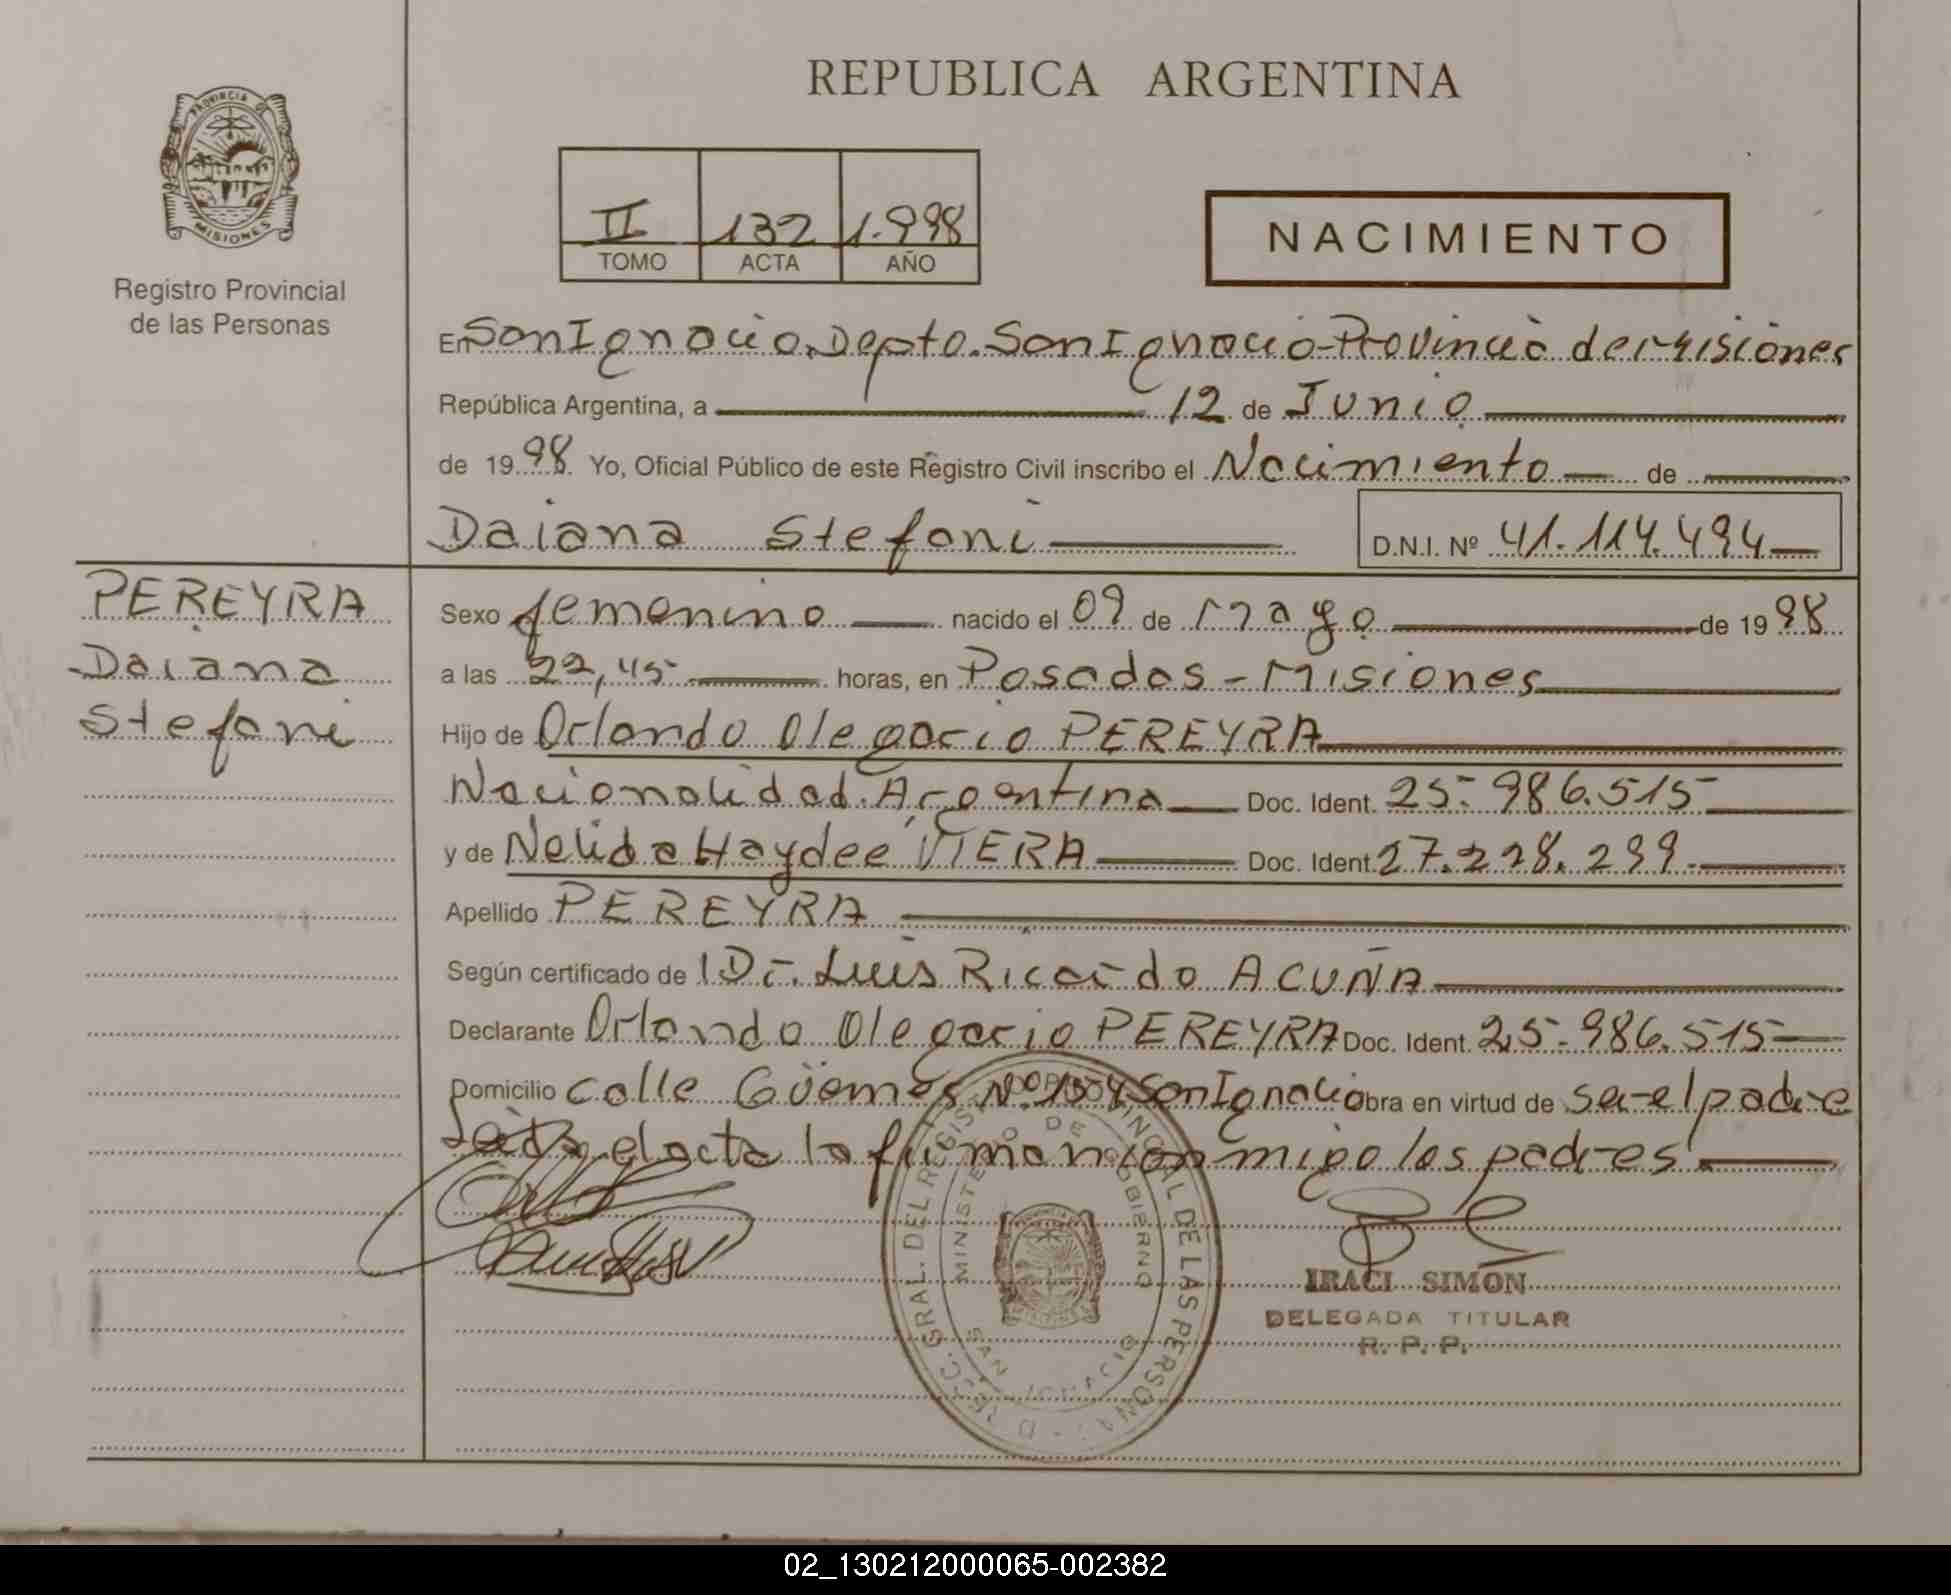 REPUBLICA ARGENTINA
PROVINCIA DE
MISIONES
Registro Provincial
de las Personas
II 132 1.998
TOMO ACTA AÑO
NACIMIENTO
En San Ignacio, Depto. San Ignacio-Provincia de Misiones
República Argentina, a 12 de Junio
de 1998 Yo, Oficial Público de este Registro Civil inscribo el Nacimiento de
Daiana Stefani D.N.I. Nº 41.114.494
PEREYRA
Daiana
Stefani
Sexo femenino nacido el 09 de Mayo de 1998
a las 22,45 horas, en Posadas - Misiones
Hijo de Orlando Olegario PEREYRA
Nacionalidad Argentina Doc. Ident. 25.986.515
y de Nelida Haydee VIERA Doc. Ident. 27.228.299
Apellido PEREYRA
Según certificado de Dr. Luis Ricardo ACUÑA
Declarante Orlando Olegario PEREYRA Doc. Ident. 25.986.515
Domicilio calle Güemes Nº San Ignacio obra en virtud de ser el padre
Leida el acta la firman conmigo los padres
GRAL. DEL REGISTRO PROVINCIAL DE LAS PERSONAS
MINISTERIO DE GOBIERNO
SAN IGNACIO
IRACI SIMON
DELEGADA TITULAR
R. P. P.
02_130212000065-002382